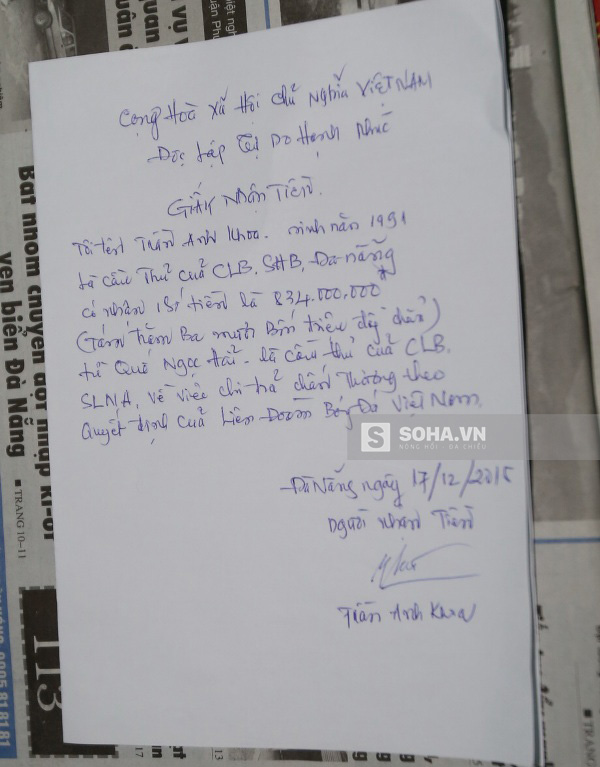 Cộng Hoà Xã Hội Chủ Nghĩa Việt NAM
Độc Lập Tự Do Hạnh Phúc
GIẤY NHẬN TIỀN.
Tôi tên Trần Anh Khoa. sinh năm 1991
là cầu thủ của CLB. SHB. Đà nẵng
có nhận số tiền là 834.000.000đ
(Tám trăm Ba mươi Bốn triệu đồng chẵn)
từ Quế Ngọc Hải. là cầu thủ của CLB.
SLNA. về việc chi trả chấn thương theo
quyết định của Liên Đoàn Bóng Đá Việt Nam.
S SOHA.VN
NÓNG HỔI - ĐA CHIỀU
Đà Nẵng ngày 17/12/2015
người nhận Tiền
Trần Anh Khoa
Bát nhóm chuyên đột nhập
ven biển Đà Nẵng
■ TRANG 10-11
113
0905.818181
13
17
■ TRANG